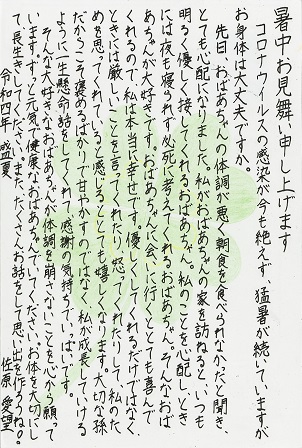 暑中お見舞い申し上げます
コロナウイルスの感染が今も絶えず、猛暑が続いていますが
お身体は大丈夫ですか。
先日、おばあちゃんの体調が悪く朝食を食べられなかったと聞き、
とても心配になりました。私がおばあちゃんの家を訪ねると、いつも
明るく優しく接してくれるおばあちゃん。私のことを心配しとき
には夜も寝られず必死に考えてくれるおばあちゃん。そんなおば
あちゃが大好きです。おばあちゃんに会いに行くととても喜んで
くれるので、私は本当に幸せです。優しくしてくれるだけではなく、
ときには厳しいことを言ってくれたり、怒ってくれたりして、私のた
めを思ってくれていると感じるととても嬉しくなります。大切な孫
だからこそ褒めるばかりで甘やかすのではなく、私が成長していける
ように一生懸命話をしてくれて、感謝の気持ちでいっぱいです。
そんな大好きなおばあちゃんが体調を崩さないことを心から願って
います。ずっと元気で健康なおばあちゃんでいてください。お体を大切にし
て、長生きしてください。また、たくさんお話をして思い出を作ろうね。
令和四年 盛夏
佐原 愛望